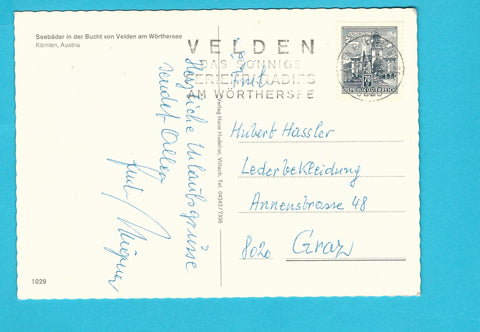 Seebäder in der Bucht von Velden am Wörthersee
Kärnten, Austria
VELDEN
DAS SONNIGE
FERIENPARADIES
AM WÖRTHERSEE
REPUBLIK ÖSTERREICH
Herzliche Urlaubsgrüsse
sendet Allen
Verlag Hans Hudelist, Villach, Tel. 04242/7335
Hubert Hassler
Lederbekleidung
Annenstrasse 48
8020 Graz
1029